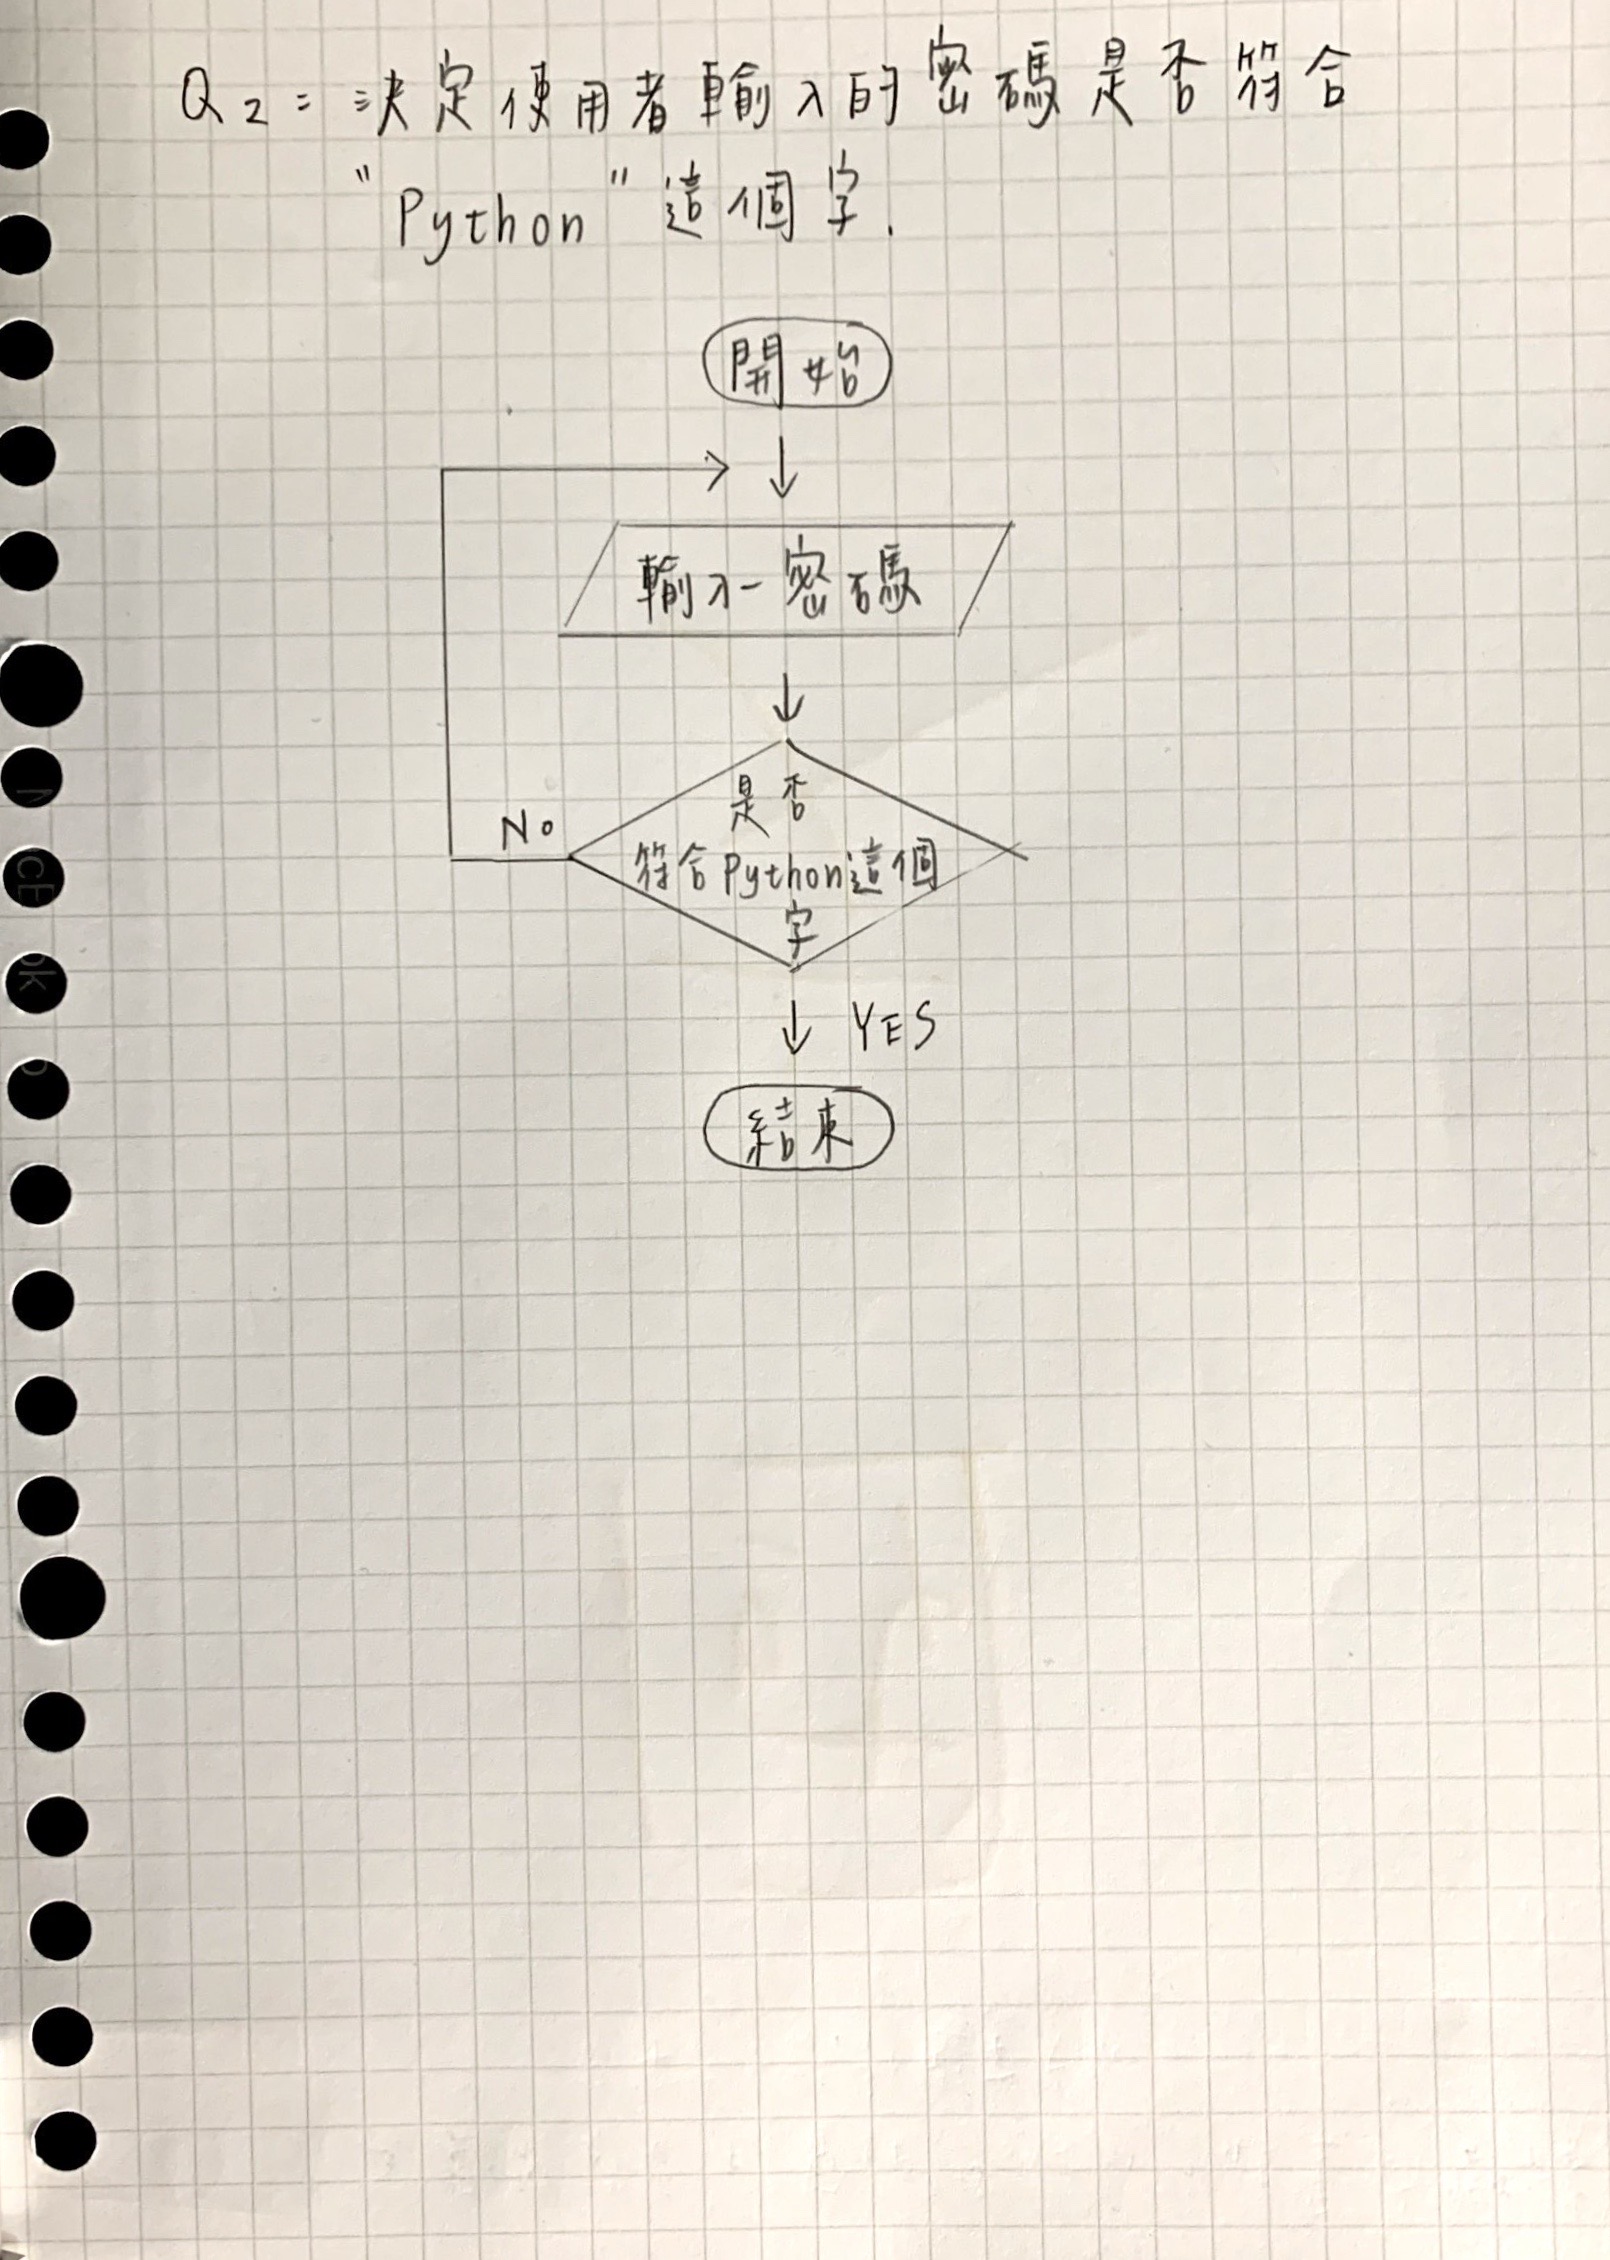 Q2: 決定使用者輸入的密碼是否符合
"Python"這個字.
開始
輸入一密碼
是否
No
符合Python這個
字
YES
結束